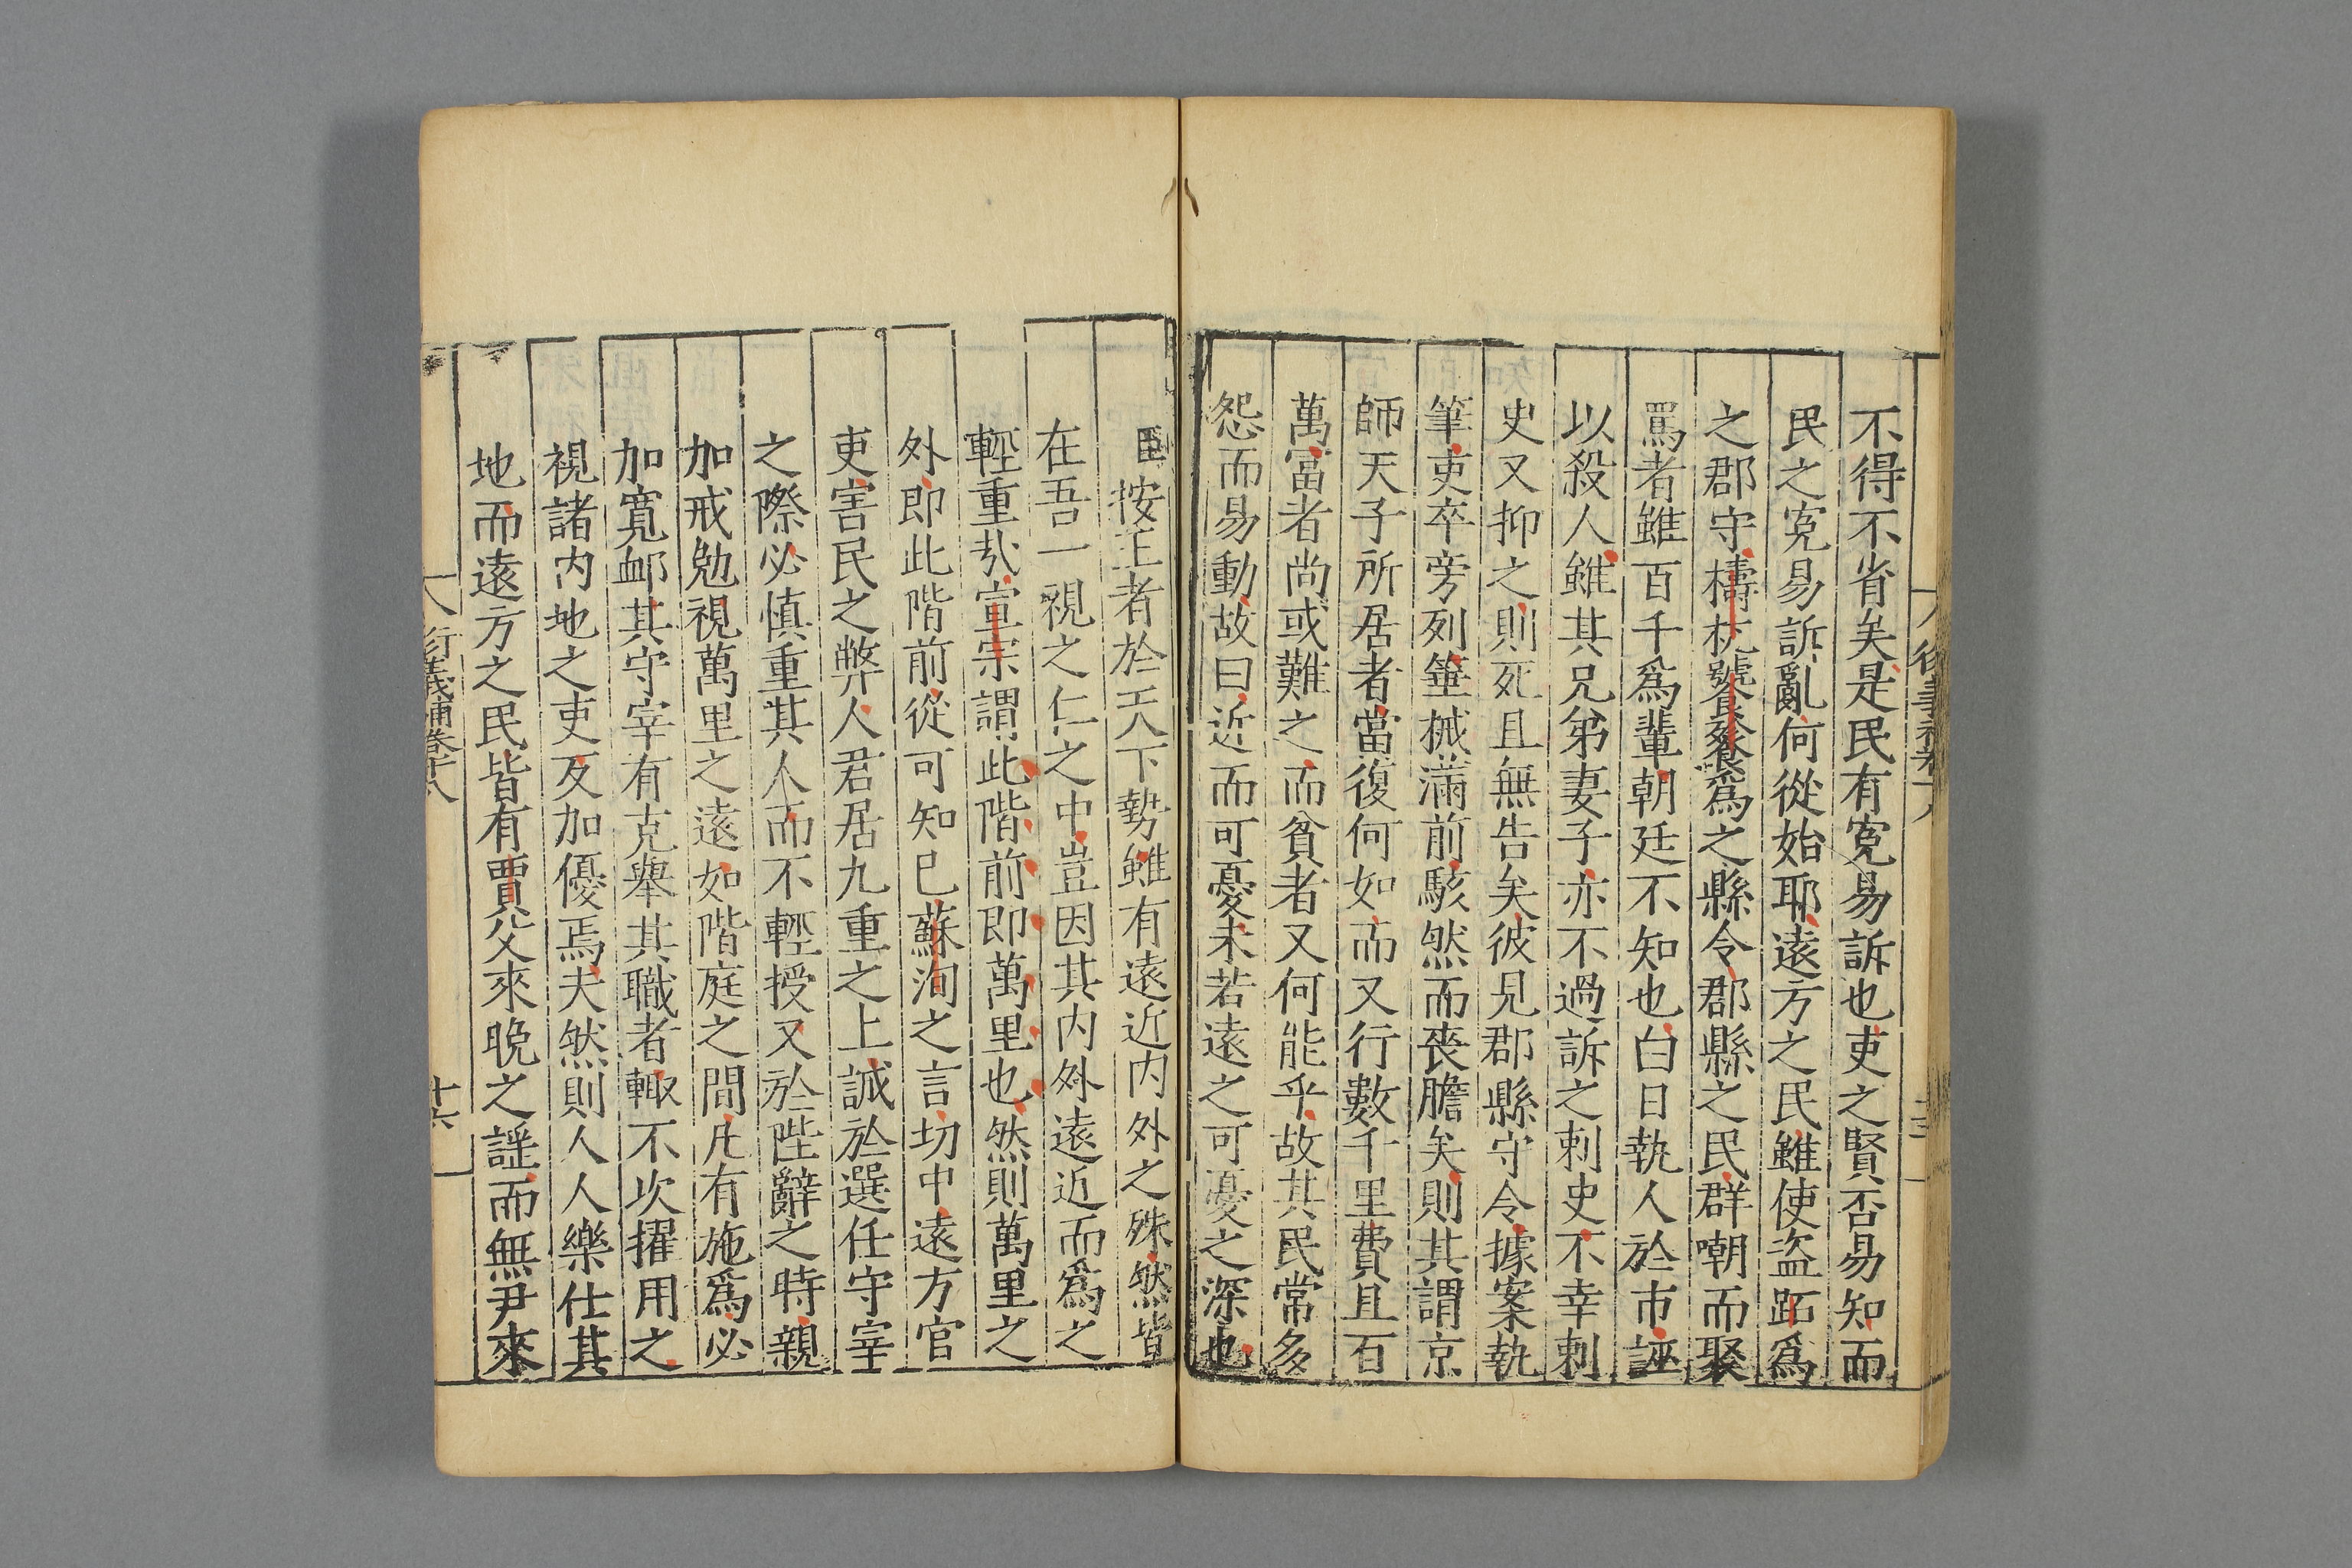 不得不省矣是民有寃易訴也吏之賢否易知而
民之寃易訴亂何從始耶遠方之民雖使盜跖爲
之郡守檮杌饕餮爲之縣令郡縣之民群嘲而聚
罵者雖百千爲輩朝廷不知也白日執人於市誣
以殺人雖其兄弟妻子亦不過訴之刺史不幸刺
史又抑之則死且無告矣彼見郡縣守令據案執
筆吏卒旁列箠械滿前駭然而喪膽矣則其謂京
師天子所居者當復何如而又行數千里費且百
萬富者尚或難之而貧者又何能乎故其民常多
怨而易動故曰近而可憂未若遠之可憂之深也
臣按王者於天下勢雖有遠近内外之殊然皆
在吾一視之仁之中豈因其内外遠近而爲之
輕重㢤宣宗謂此階前即萬里也然則萬里之
外即此階前從可知已蘇洵之言切中遠方官
吏害民之弊人君居九重之上誠於選任守宰
之際必慎重其人而不輕授又於陛辭之時親
加戒勉視萬里之遠如階庭之間凡有施爲必
加寬衈其守宰有克舉其職者輙不次擢用之
視諸内地之吏反加優焉夫然則人人樂仕其
地而遠方之民皆有賈父來晚之謡而無尹來
衍義補卷十八
十六